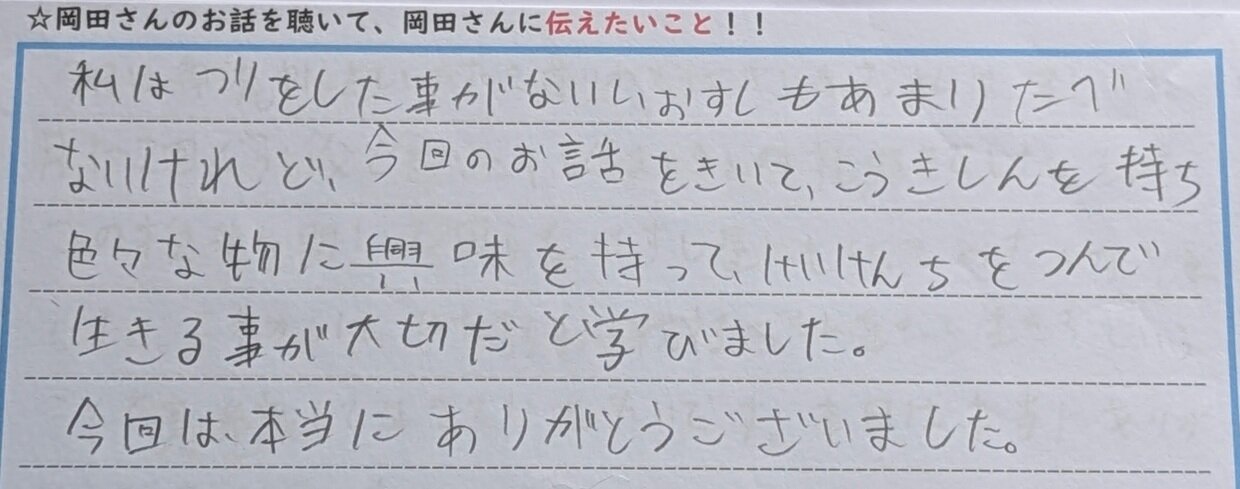 ☆岡田さんのお話を聴いて、岡田さんに伝えたいこと！！
私はづりをした事がないし、おすしもあまりたべ
ないけれど、今回のお話をきいて、こうきしんを持ち
色々な物に興味を持って、けいけんちをつんで
生きる事が大切だと学びました。
今回は、本当にありがとうございました。